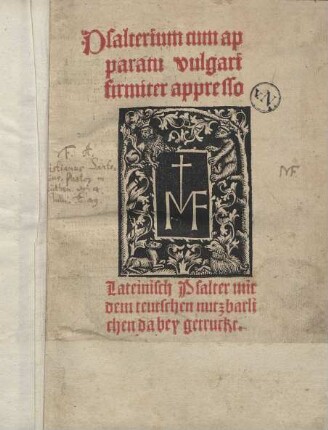 Psalterium cum ap
paratu vulgari
firmiter appresso
MF
MF
Lateinisch Psalter mit
dem teutschen nutzbarli
chen dabey getruckt.